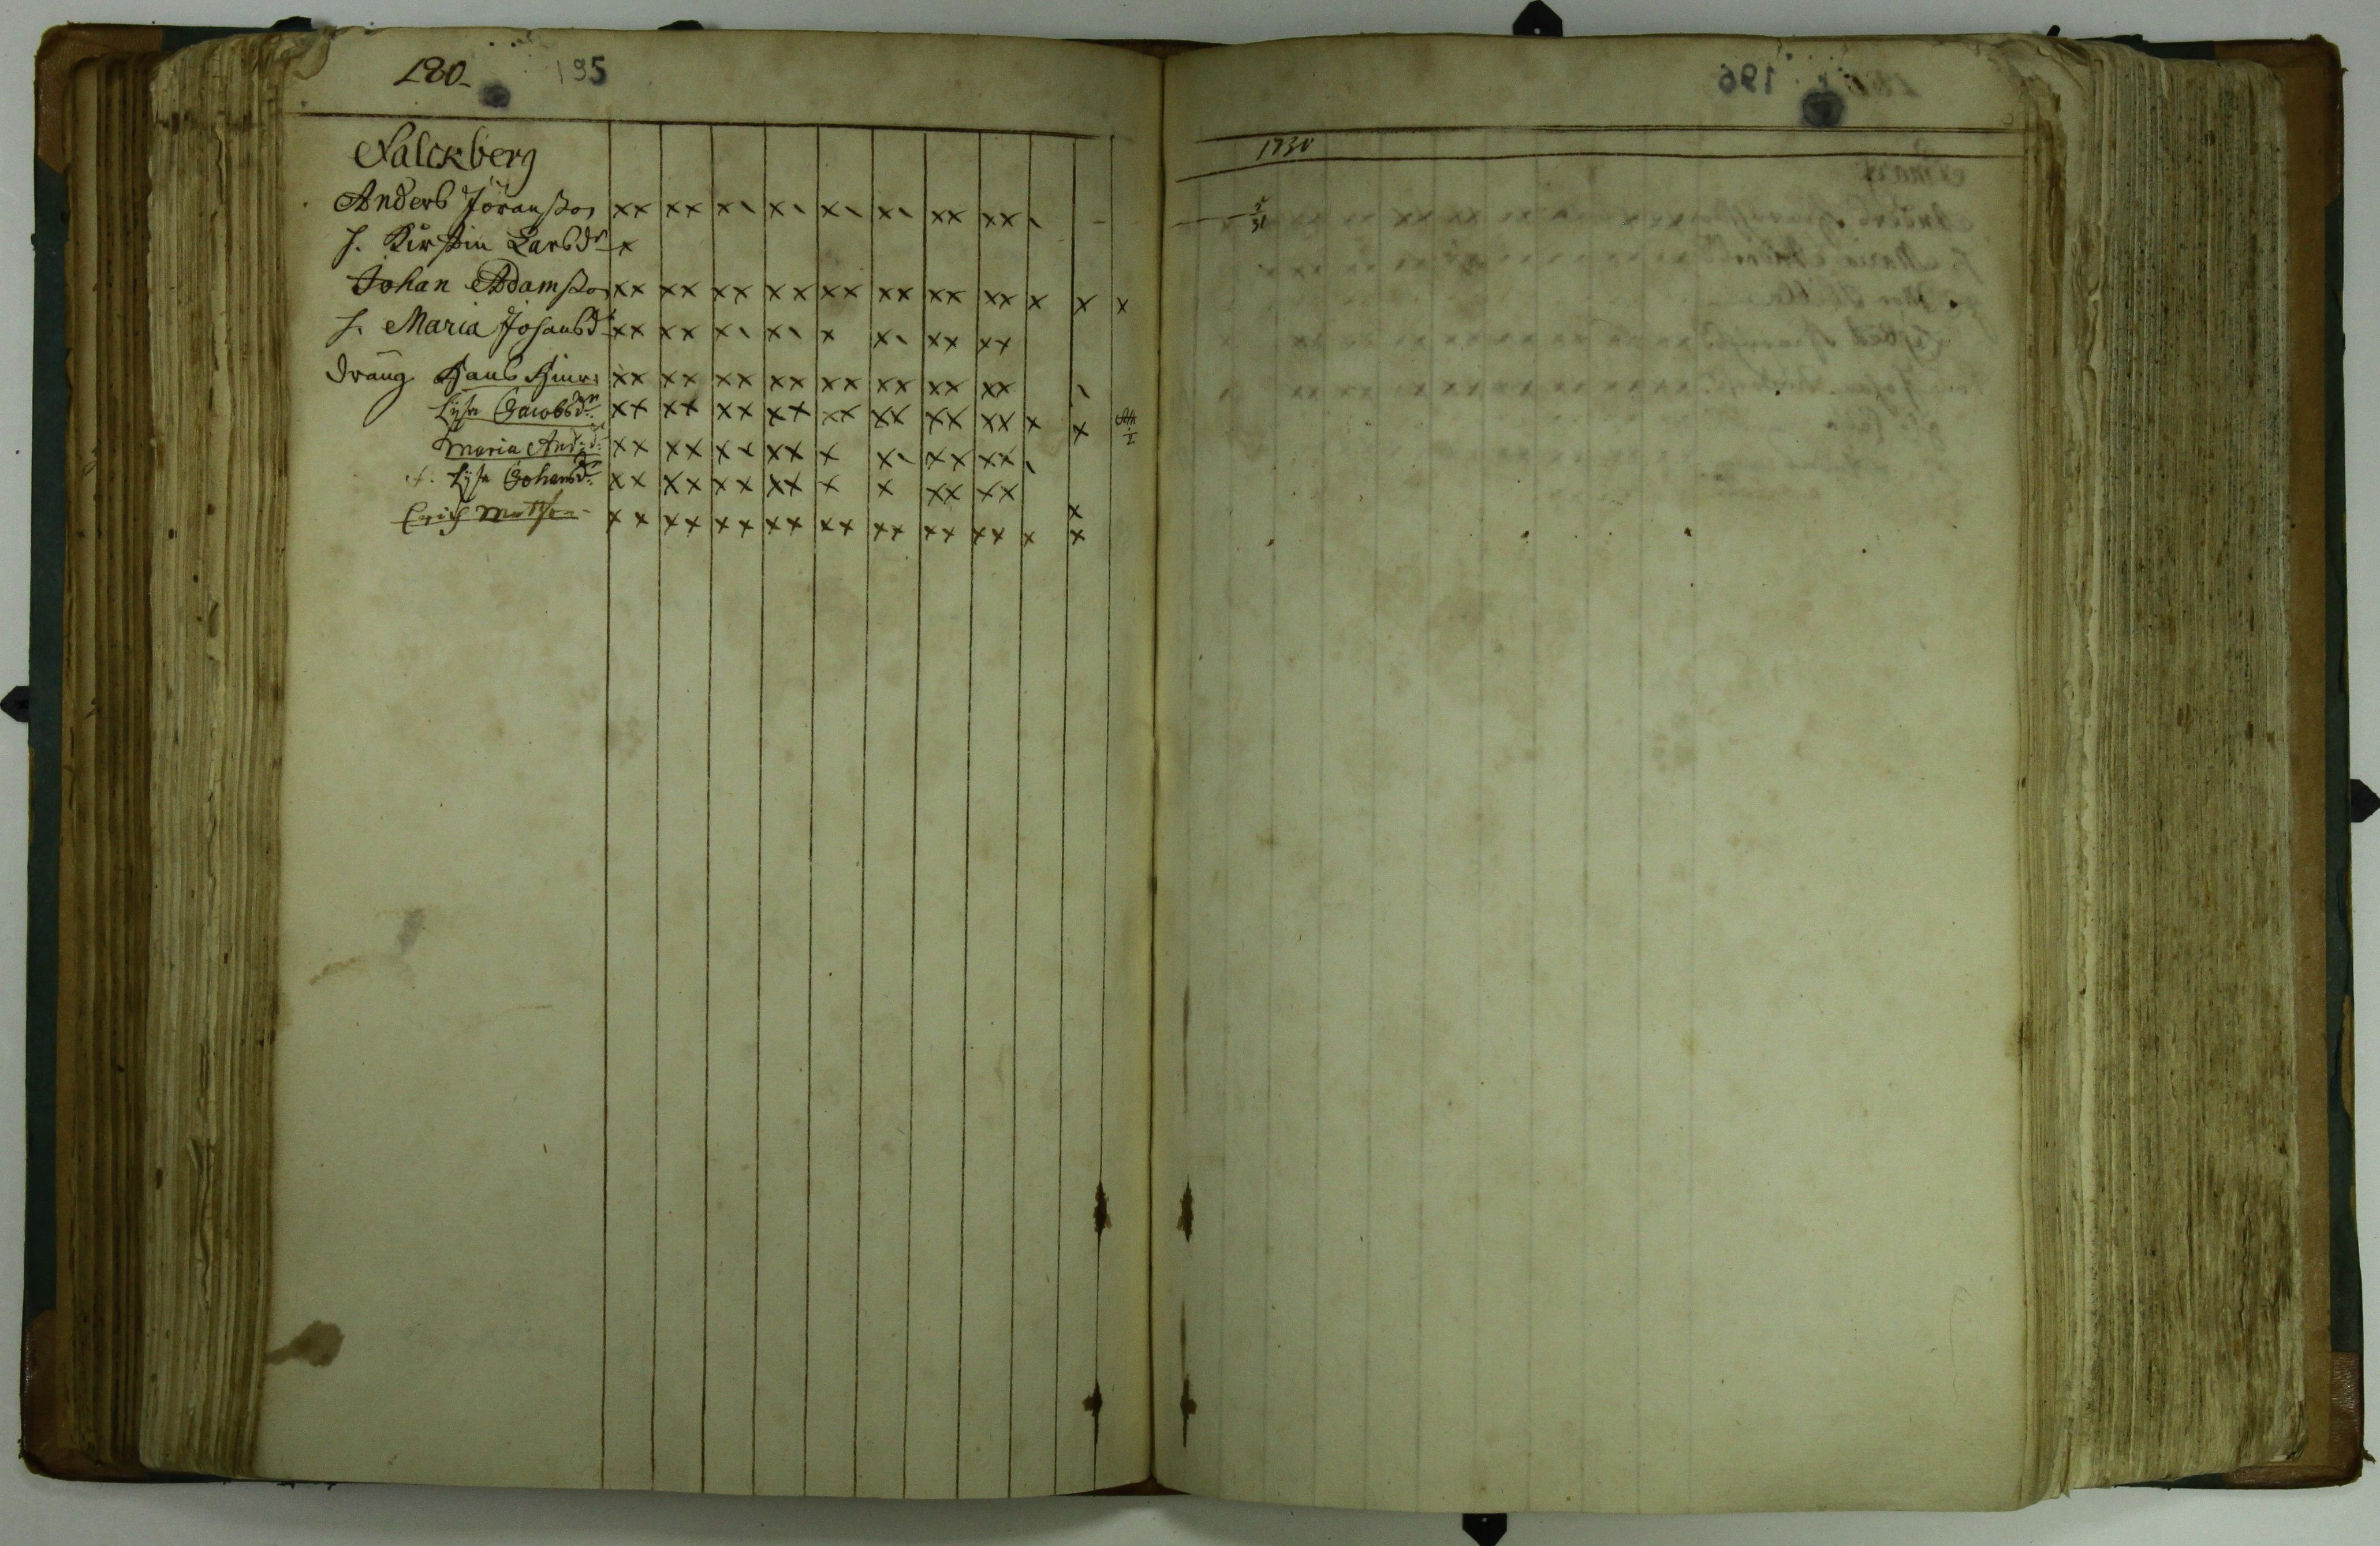 180. 195
Falckberg
Anders Jöransson xx xx x\ x\ x\ x\ xx xx \ –
h. Kirstin Larsdr x
Johan Adamsson xx xx xx xx xx xx xx xx x x x
h. Maria Johansdr xx xx x\ x\ x x\ xx xx
dräng Hans Hinr: xx xx xx xx xx xx xx xx \
Lysa Jacobsdr xx xx xx xx xx xx xx xx x x
Maria And:d: xx xx xx xx x x\ xx xx \
h. Lysa Johansdr xx xx xx xx x x xx xx x
Erich Mattson xx xx xx xx xx xx xx xx x x
196
1730
5/31